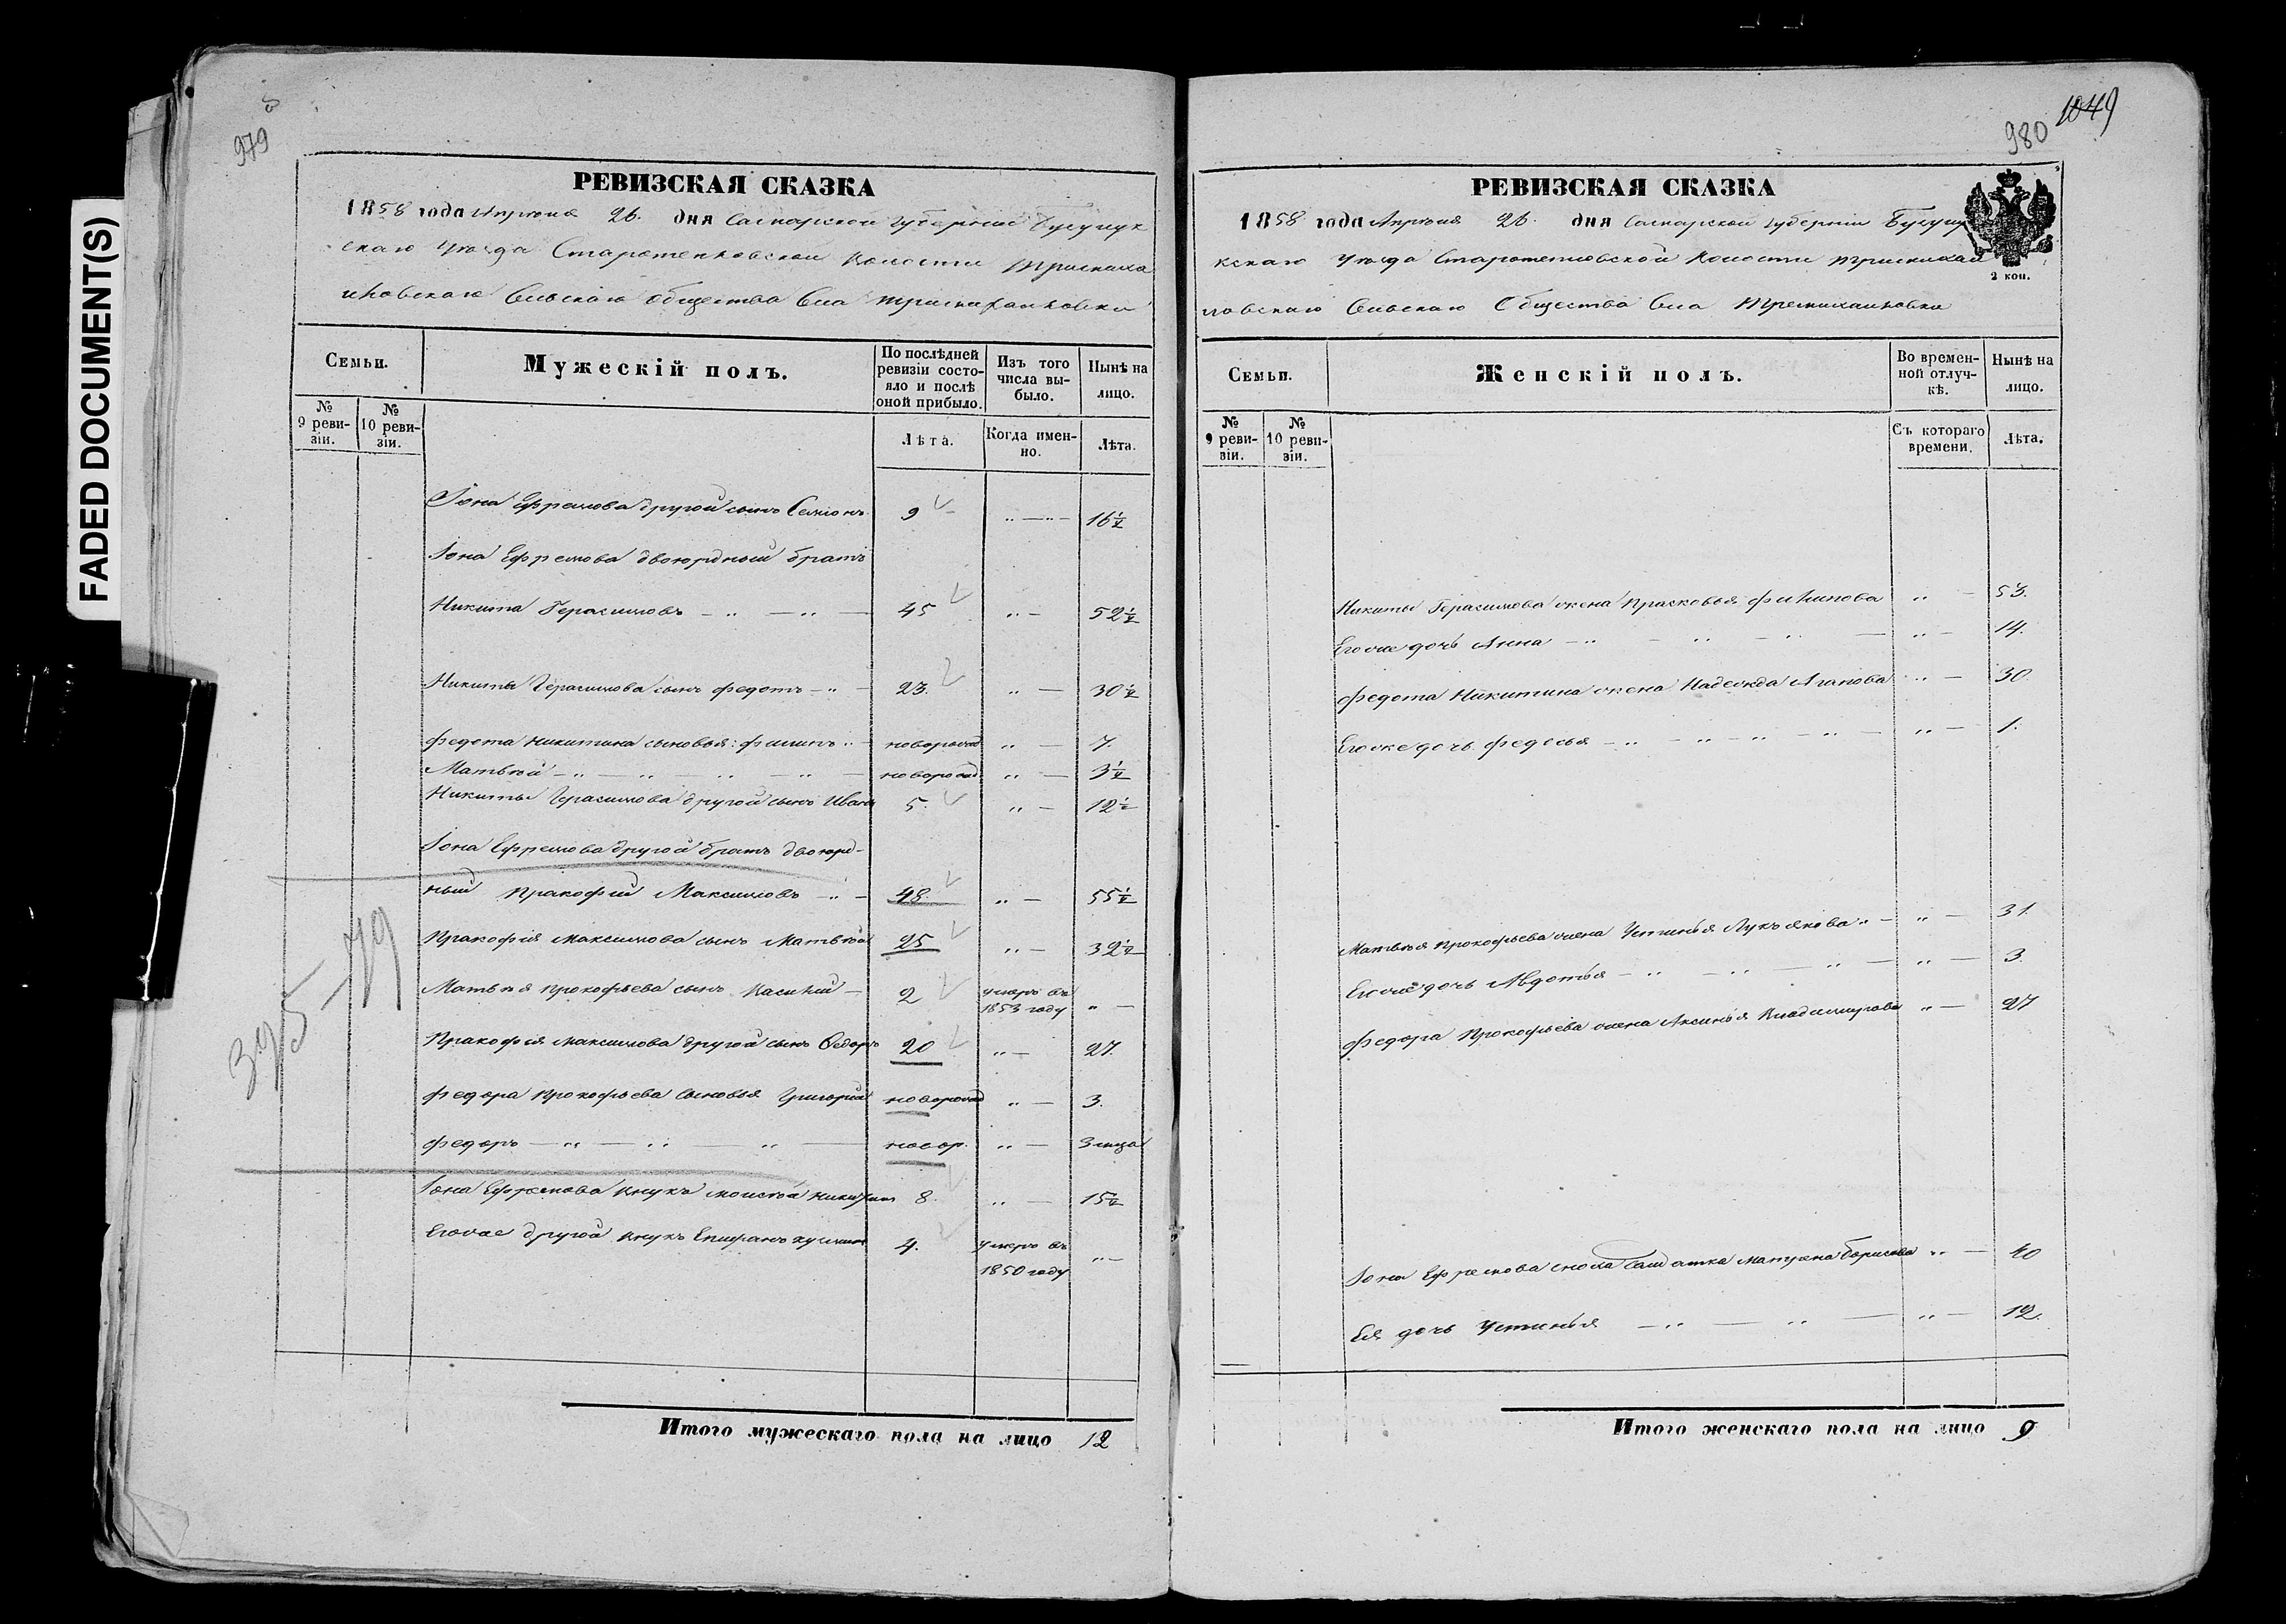 FADED DOCUMENT(S)
979
РЕВИЗСКАЯ СКАЗКА
1858 года Апреля 26. дня Самарской губернии Бузулук
скаго уезда Старотепловской волости
скаго Сельскаго общества Села
Семьи.
Мужескій полъ.
По послѣдней ревизіи состояло и послѣ оной прибыло.
Изъ того числа выбыло.
Нынѣ на лицо.
№ 9 ревизіи.
№ 10 ревизіи.
Лѣта.
Когда именно.
Лѣта.
Іона Ефремова другой сынъ Семіонъ 9 16 1/2
Іона Ефремова двоюрдный братъ
Никита Герасимовъ 45 52 1/2
Никиты Герасимова сынъ Федотъ 23. 30 1/2
Федота Никитина сыновья: Филипъ новорожд 7.
Матвѣй новорожд 3 1/2
Никиты Герасимова другой сынъ Иванъ 5. 12 1/2
Іона Ефремова другой братъ двоюрд-
ный Пракофий Максимовъ 48. 55 1/2
Пракофія Максимова сынъ Матвѣй 25 32 1/2
Матвѣя Прокофьева сынъ Василий 2 умеръ въ 1853 году
Пракофія Максимова другой сынъ Федоръ 20 27.
Федора Прокофьева сыновья Григорий новорожд 3.
Федоръ новор. 3 мѣца
Іона Ефремова внукъ Моисѣй 8. 15 1/2
Егоже другой внукъ Епифанъ 4. умеръ въ 1850 году
395-79
Итого мужескаго пола на лицо 12
980 1049
РЕВИЗСКАЯ СКАЗКА
1858 года Апреля 26. дня Самарской губерніи Бузулу
кскаго уезда Старотепловской волости
Сельскаго Общества Села
2 коп.
Семьи.
Женскій полъ.
Во временной отлучкѣ.
Нынѣ на лицо.
№ 9 ревизіи.
№ 10 ревизіи.
Съ котораго времени.
Лѣта.
Никиты Герасимова жена Прасковья Филипова 53.
Егоже дочь Анна 14.
Федота Никитина жена Надежда Агапова 30.
Егоже дочь Федосья 1.
Матвѣя Прокофьева жена Устинья Лукьянова 31.
Егоже дочь Авдотья 3.
Федора Прокофьева жена Аксинья Владимирова 27
Іона Ефремова сноха Салдатка Матрена Борисова 40
Ея дочь Устинья 12.
Итого женскаго пола на лицо 9